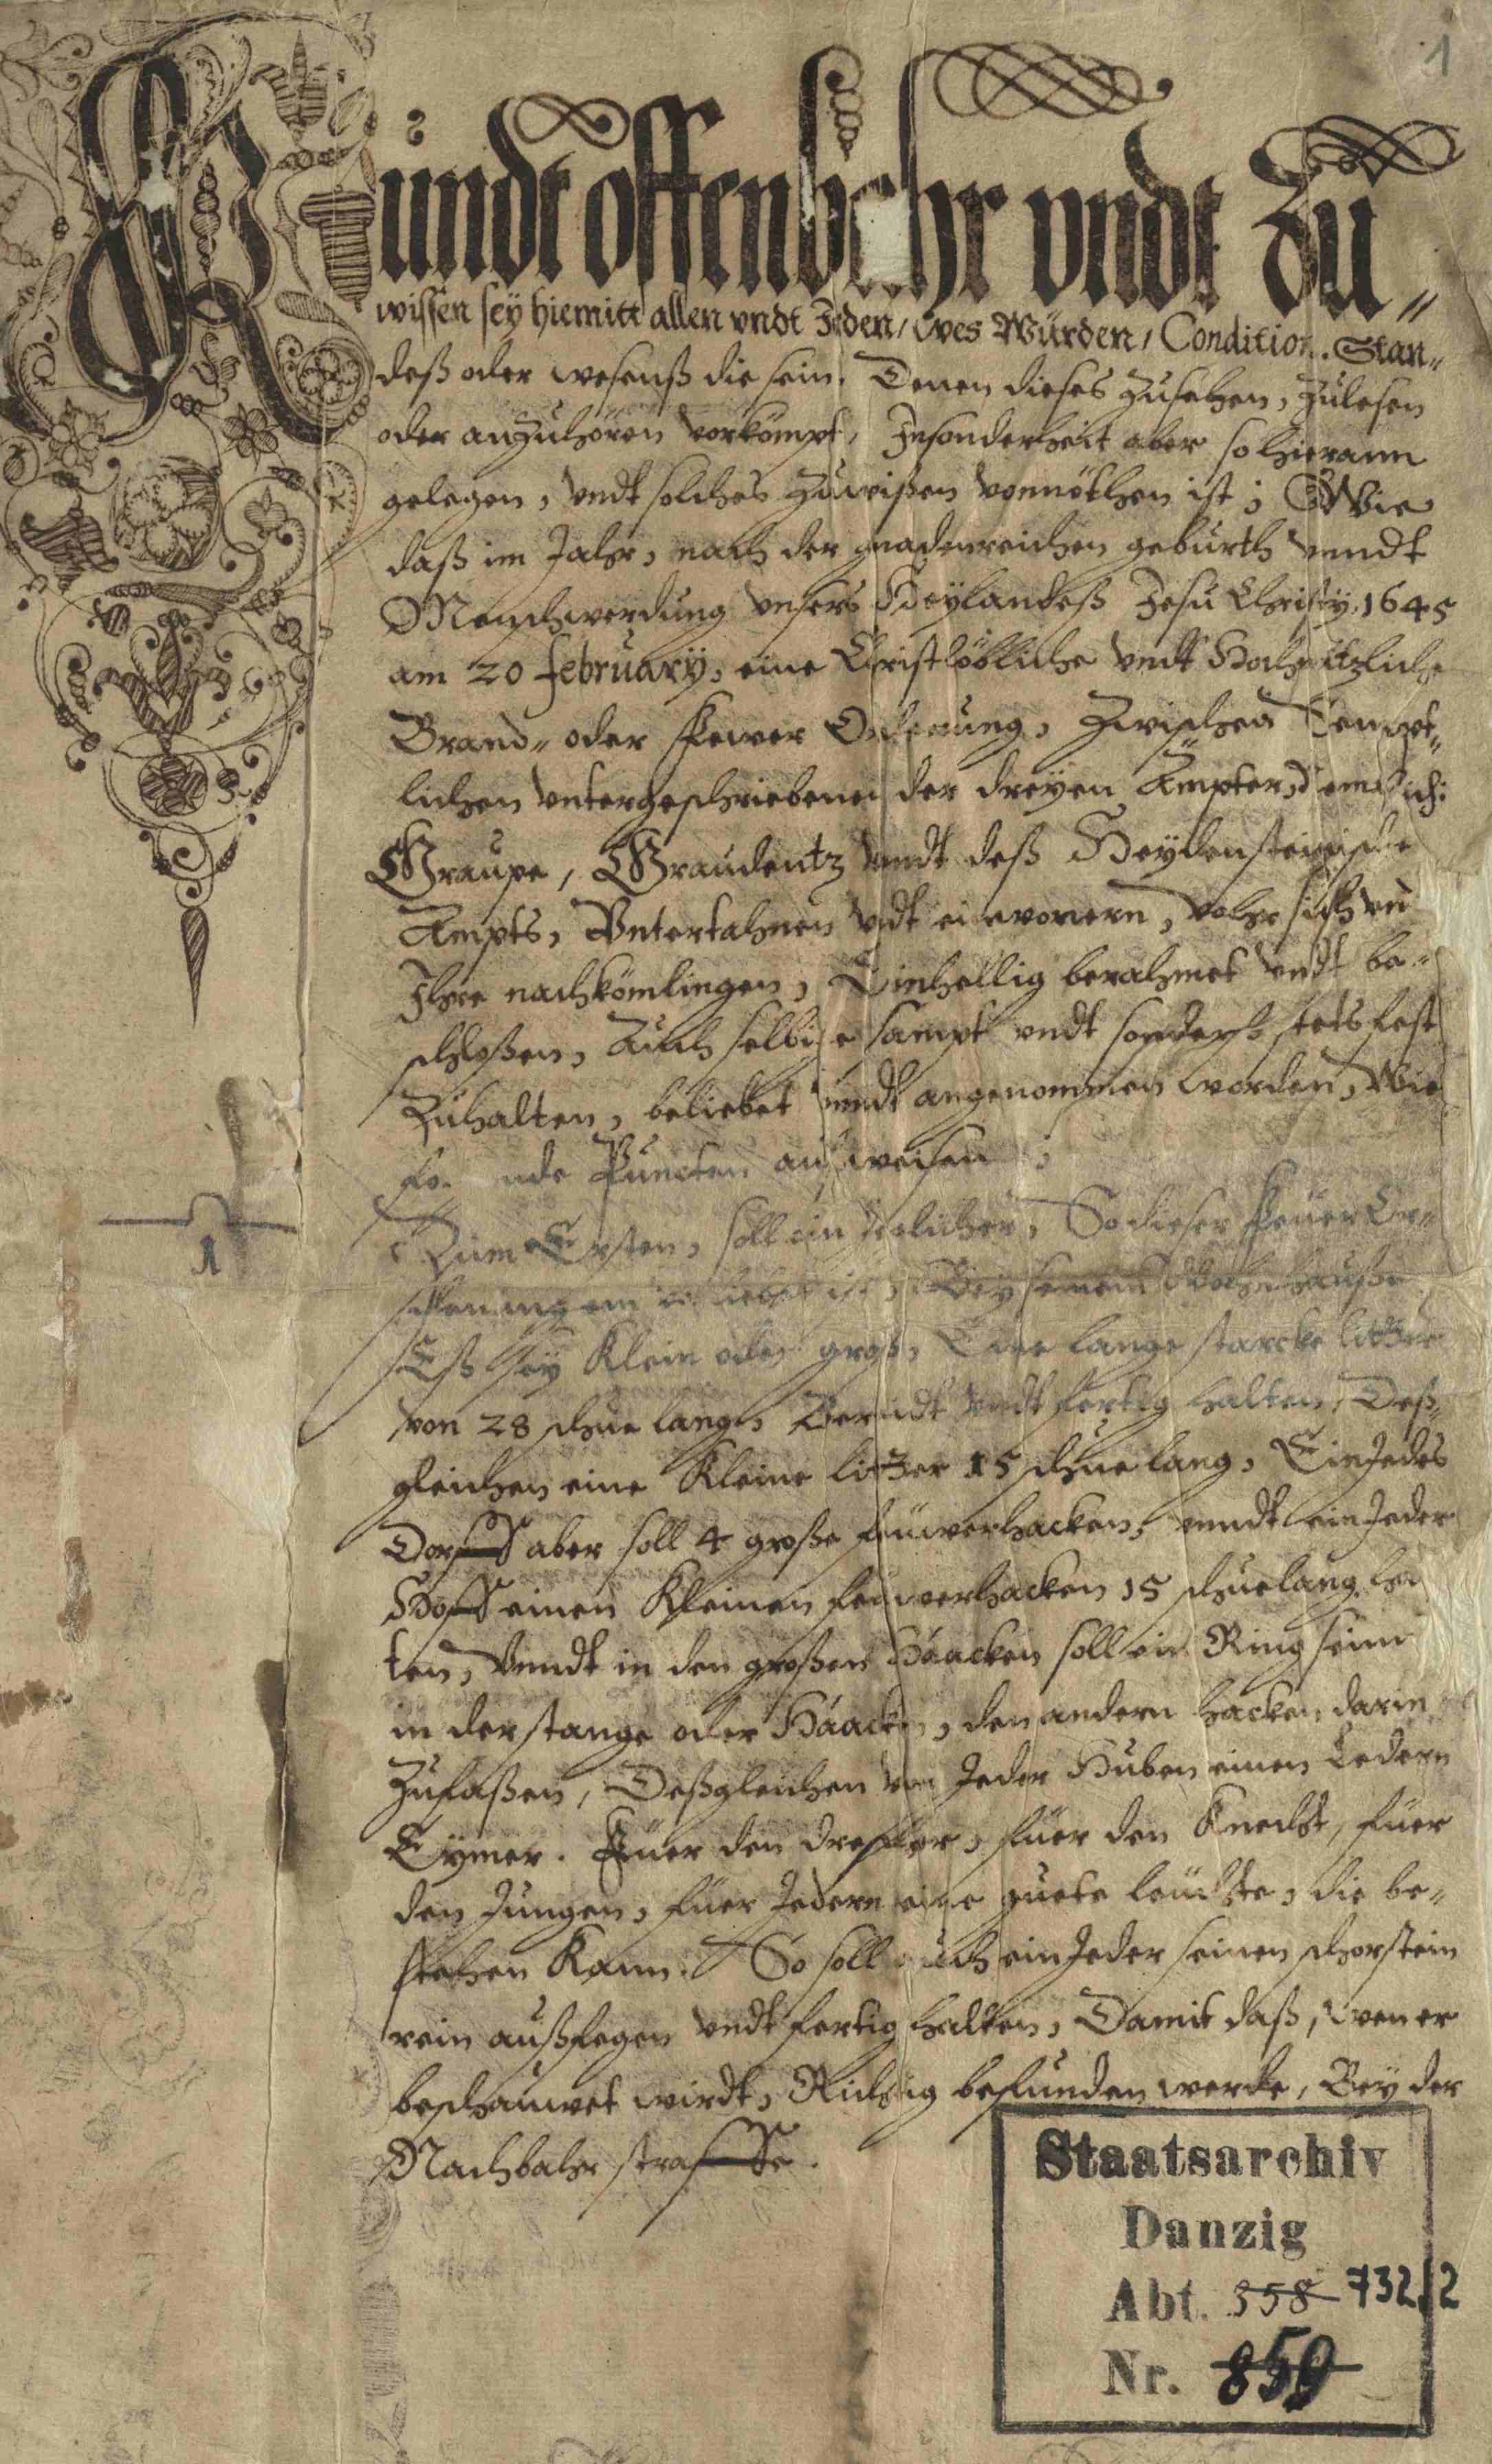 1
Kündt offenbahr vndt Zu„
wissen sey hiemitt allen vndt Jeden, wes Würden, Condition. Stan„
deß oder wesenß die sein. Denen dieses Zusehen, Zulesen
oder anzuhören vorkömpt, Insonderheit aber so hierann
gelegen, vndt solches Zuwißen vonnöthen ist; Wie
daß im Jahr, nach der gnadenreichen geburth vnndt
Menschwerdung vnsers Heylandeß Jesu Christÿ, 1645
am 20 februarÿ, eine Christlöbliche vndt Hochnützliche
Brand„ oder Fewer Ordenung, Zwischen
lichen vntergeschriebenen der dreyen Ämpter,
Graupe, Graudentz vndt deß Heydensteinische
Ampts, Vntertahnen vndt einwonern, vohr sich vn
Ihre nachkömlingen, Einhellig berahmet vndt be„
schloßen, Auch selbige sampt vndt sonders stets fest
Zuhalten, beliebet vnndt angenommen worden, Wie
Puncten außweisen;
Zum Ersten, soll ein Jeslicher, So dieser Feuer Or„
Bey seinem Wohnhause
Eß sey Klein oder groß, Eine lange starcke litter
von 28 schue lang, Berridt vndt fertig halten, Deß„
gleichen eine Kleine litter 15 schue lang, Ein Jedes
Dorff aber soll 4 große feuwerhacken, vnndt ein Jeder
Hoff einen Kleinen feuwerhacken 15 schuelang hal
ten, Vnndt in den großen Haacken soll ein Ring sein
in der stange oder Haacken, den andern hacken darin
Zufaßen, Deßgleichen von Jeder Huben einen Ledern
Eymer. Füer den dreschler, füer den Knecht, füer
den Jungen, füer Jedern eine guete leuchte, die be„
stehen Kann. So soll auch ein Jeder seinen schorstein
rein außfegen vndt fertig halten, Damit daß, wen er
beschauwet wirdt, Richtig befunden werde, Bey der
Nachbahr straffe.
1
Staatsarchiv
Danzig
Abt. 358 732/2
Nr. 859